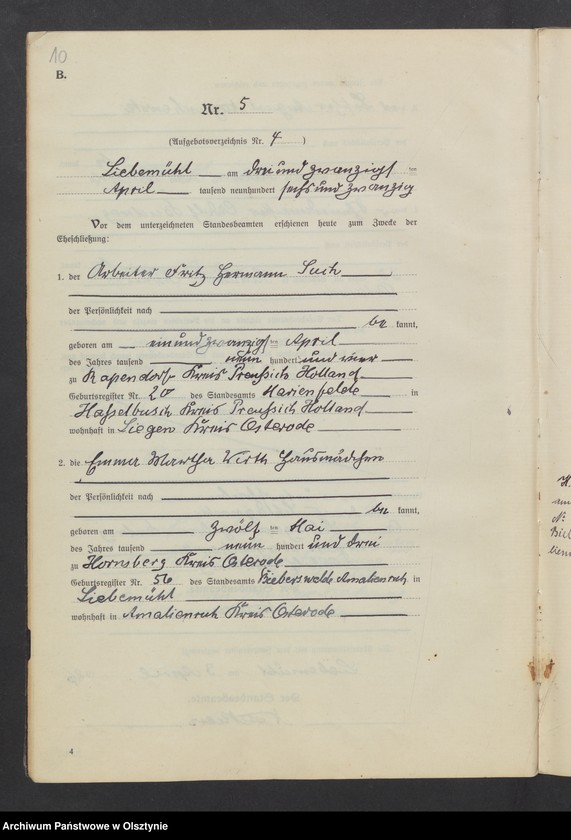 10
B.
Nr. 5
(Aufgebotsverzeichnis Nr. 4)
Liebemühl am drei und zwanzigsten
April tausend neunhundert sechs und zwanzig
Vor dem unterzeichneten Standesbeamten erschienen heute zum Zwecke der
Eheschließung:
1. der Arbeiter Fritz Hermann
der Persönlichkeit nach
be kannt,
geboren am ein und zwanzigsten April
des Jahres tausend neun hundert und vier
zu Rapendorf Kreis Preußisch Holland
Geburtsregister Nr. 20 des Standesamts Marienfelde in
Hasselbusch Kreis Preußisch Holland
wohnhaft in Liegen Kreis Osterode
2. die Emma Martha Wirth Hausmädchen
der Persönlichkeit nach
be kannt,
geboren am zwölften Mai
des Jahres tausend neun hundert und drei
zu Hornsberg Kreis Osterode
Geburtsregister Nr. 56 des Standesamts Bieberswalde Amalienruh in
Liebemühl
wohnhaft in Amalienruh Kreis Osterode
4
Archiwum Państwowe w Olsztynie